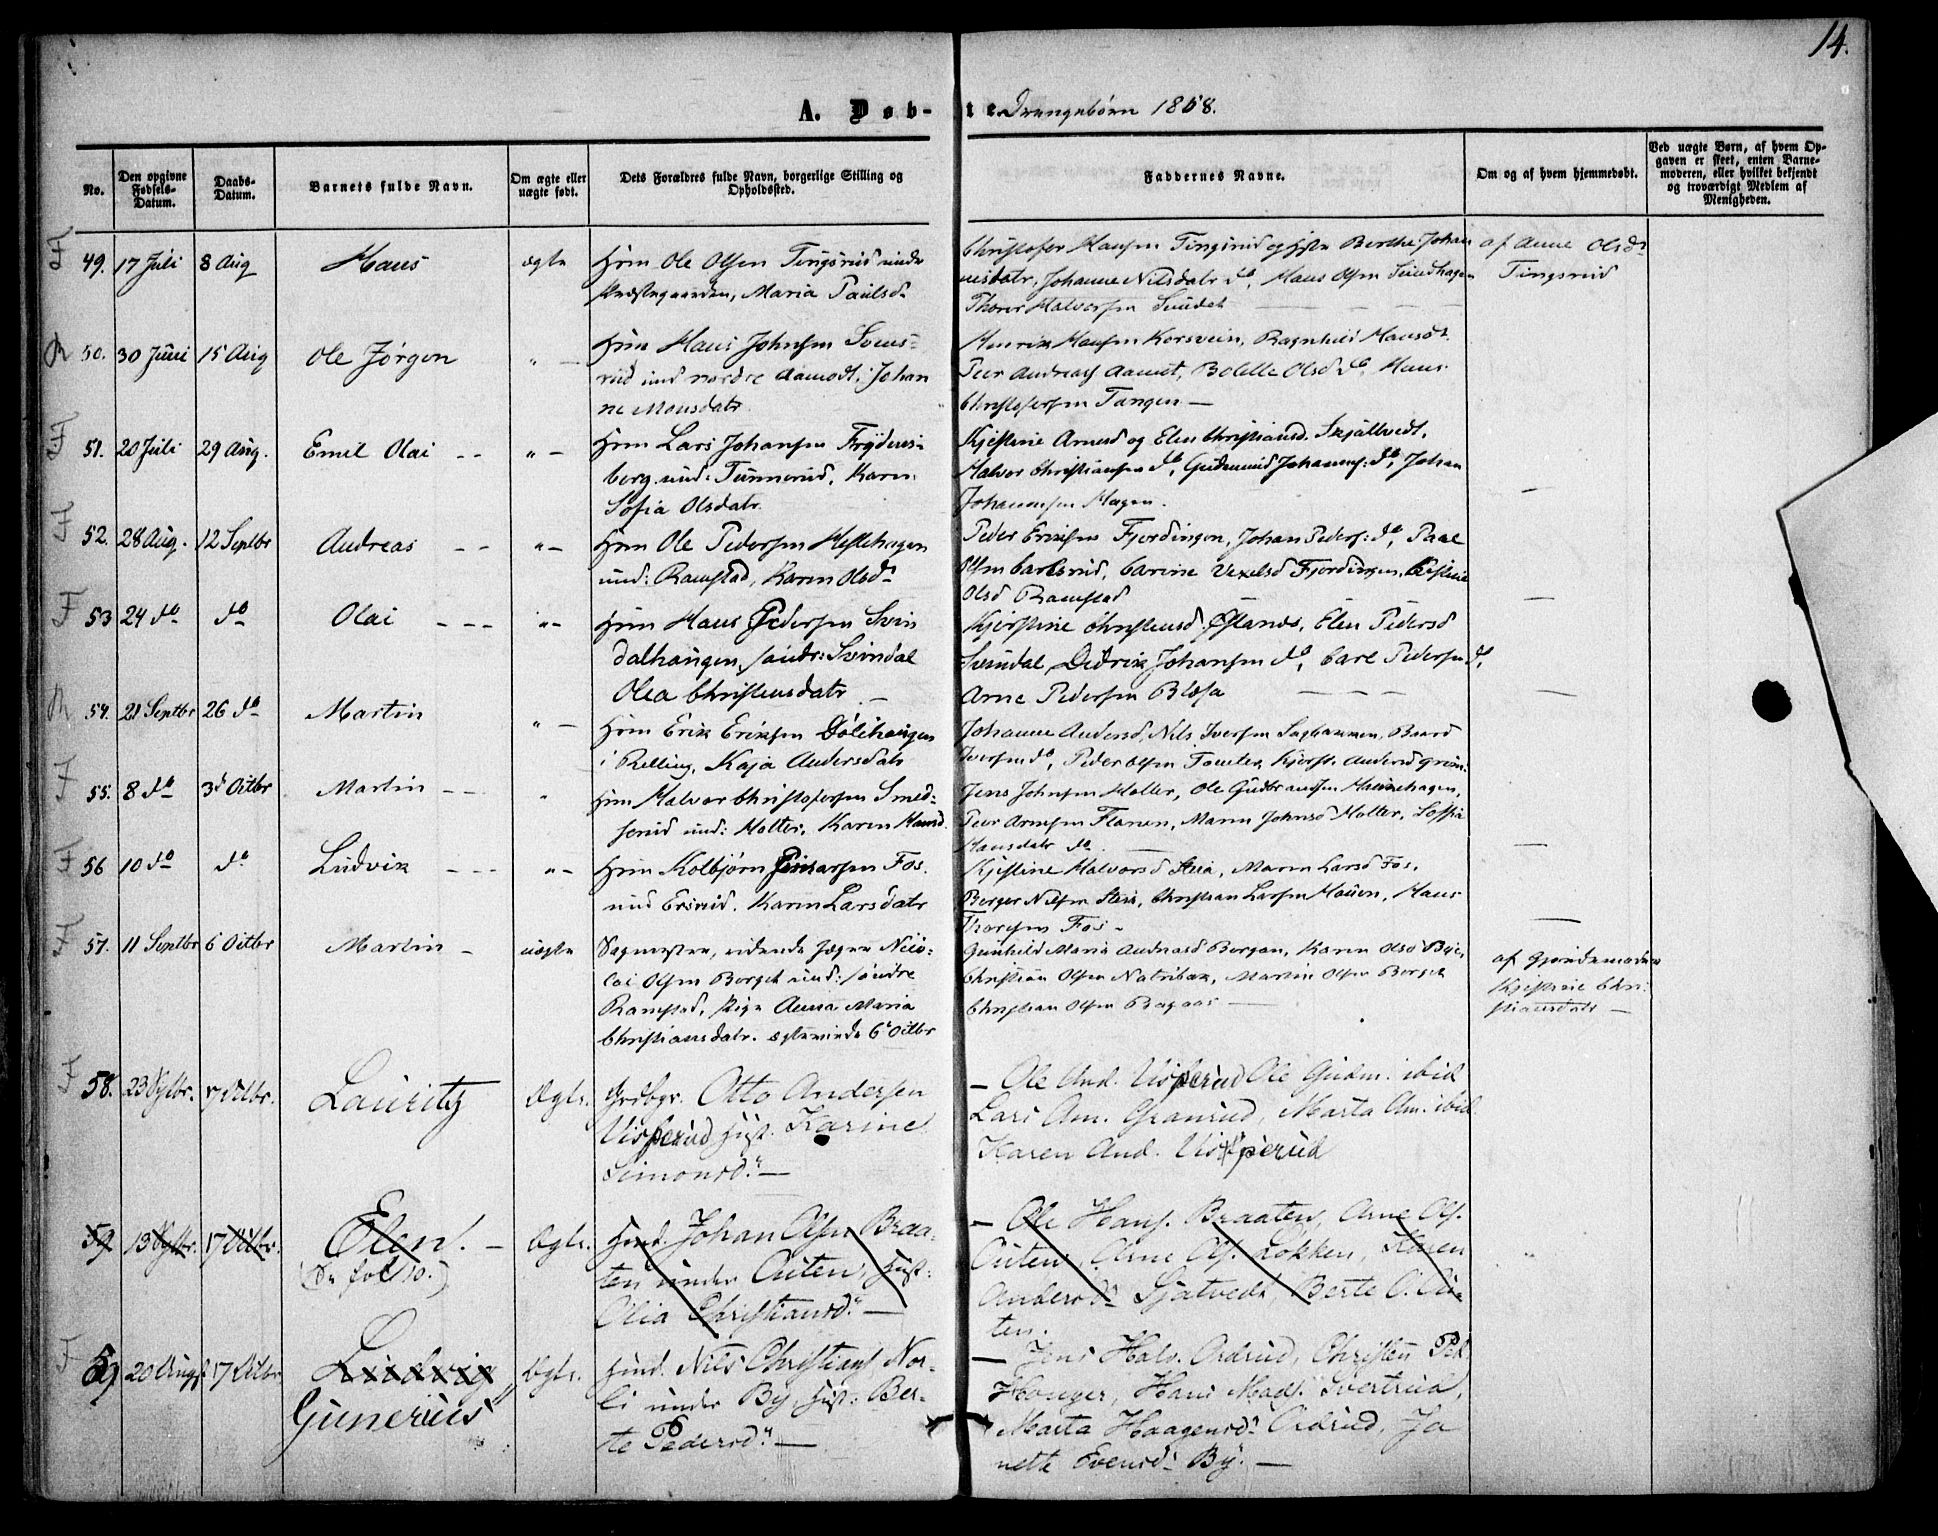 14.
A. Døb-te Drengebørn 1858.
No.
Den opgivne Fødsels-Datum.
Daabs-Datum.
Barnets fulde Navn.
Om ægte eller uægte født.
Dets Forældres fulde Navn, borgerlige Stilling og Opholdssted.
Faddernes Navne.
Om og af hvem hjemmedøbt.
Ved uægte Børn, af hvem Opgaven er skeet, enten Barnemoderen, eller hvilket bekjendt og troværdigt Medlem af Menigheden.
49. 17 Juli 8 Aug Hans ægte
Hmn Ole Olsen Tingsrud under
Præstegaarden, Maria Paulsd.
Christofer Hansen Tingsrud og Berthe Johan
nesdatr, Johanne Nilsdatr do, Hans Olsen
Thorer Halvorsen Sundet
af Anne Olsdr
Tingsrud
50. 30 Juni 15 Aug Ole Jørgen " —
Hmn Hans Johnsen
rud und nordre Aamodt, Johan
ne Monsdatr
Henrik Hansen Korsveien, Ragnhild Hansdr
Peer Andreas Aamot, Bolette Olsd do, Hans
Christofersen Tangen —
51. 20 Juli 29 Aug. Emil Olai - - " —
Hmn Lars Johansen Frydens-
berg und: Tunnerud, Karen
Sofia Olsdatr
Kjestine Arnesd og Elen Christiansd. Skjatvedt,
Halvor Christiansen do, Gudmund Johannes: do, Johan
Johannesen Hagen.
—
52. 28 Aug. 12 Septbr Andreas - - " —
Hmn Ole Pedersen Heslehagen
und: Ramstad, Karen Olsdr
Peder Eriksen Fjordingen, Johan Peders: do, Paal
Olsen Carlsrud, Carine Fjordingen,
Olsd Ramstad
—
53 24 do do Olai - - - " -
Hmn Hans Pedersen Svin
dalhaugen, søndr: Svindal
Olea Christensdatr —
Kjerstine Christensd. Østlands, Elen Pedersd
Svindal, Didrik Johansen do, Carl Pedersen do,
Arne Pedersen Blæsa
—
54. 21 Septbr 26 do Martin " —
Hmn Erik Eriksen Dølihaugen
i Relling, Kaja Andersdatr
Johanne Andersd, Nils Iversen Sagbakken, Baard
Iversen do, Peder Olsen Tomter, Kjerst. Andersd
55. 8 do 3d Octbr Martin - - "
Hmn Halvor Christofersen Smed-
serud und: Moller, Karen Hansd.
Jens Johnsen Moller, Ole Gudbrandsen Hauenhagen,
Peer Arnesen Flaoen, Maren Johnsd Moller, Sofia
Hansdatr do
—
56 10 do do Ludvik - - - " -
Hmn Kolbjørn Fos.
und Ersrud. Karen Larsdatr
Kjestine Halvorsd Steia, Maren Larsd Fos.
Berger Nilsen Steia, Christian Larsen Houen, Hans
Thorsen Fos -
—
57. 11 Septbr 6 Octbr Martin - uægte
Sagmester, Jæger Nico-
lai Olsen Borget und: søndre
Ramstad, Pige Anna Maria
Christiansdatr. 6t Octbr
Gunhild Maria Andreasd Borgen, Karen Olsd Bye,
Christian Olsen Natribak, Martin Olsen Borget
Christian Olsen Bagaas —
af Gjordemoder
Kjestine Chri-
stiansdatr —
58. 23 Sptbr. 17 Octbr. Lauritz Ægte.
Grdbgr. Otto Andersen
Visperud Hust. Karine
Simonsdr —
— Ole And. Visperud Ole Gudm. ibid
Lars Am. Granrud, Marta Am. ibid
Karen And. Visperud
59 13 Sptbr. 17 Octbr. Elen. — Ægte.
(Se fol 10.)
Husd. Johan Olsen Braa-
ten under Auten, Hust:
Olia Christiansdr —
— Ole Hans. Braaten, Arne Ols.
Auten, Arne Ols. Løkken, Karen
Andersdr Sjatvedt, Berte O. Au-
ten.
59 20 August 17 Octbr Ludvig Ægte.
Gunerius
Husd. Nils Christians Nor-
li under By, Hust: Ber-
te Pedersdr —
— Jens Halv. Ordrud, Christen Ped.
Houger, Hans Mads. Svertrud,
Marta Haagensdr Ordrud, Ja
nette Evensdr By. —